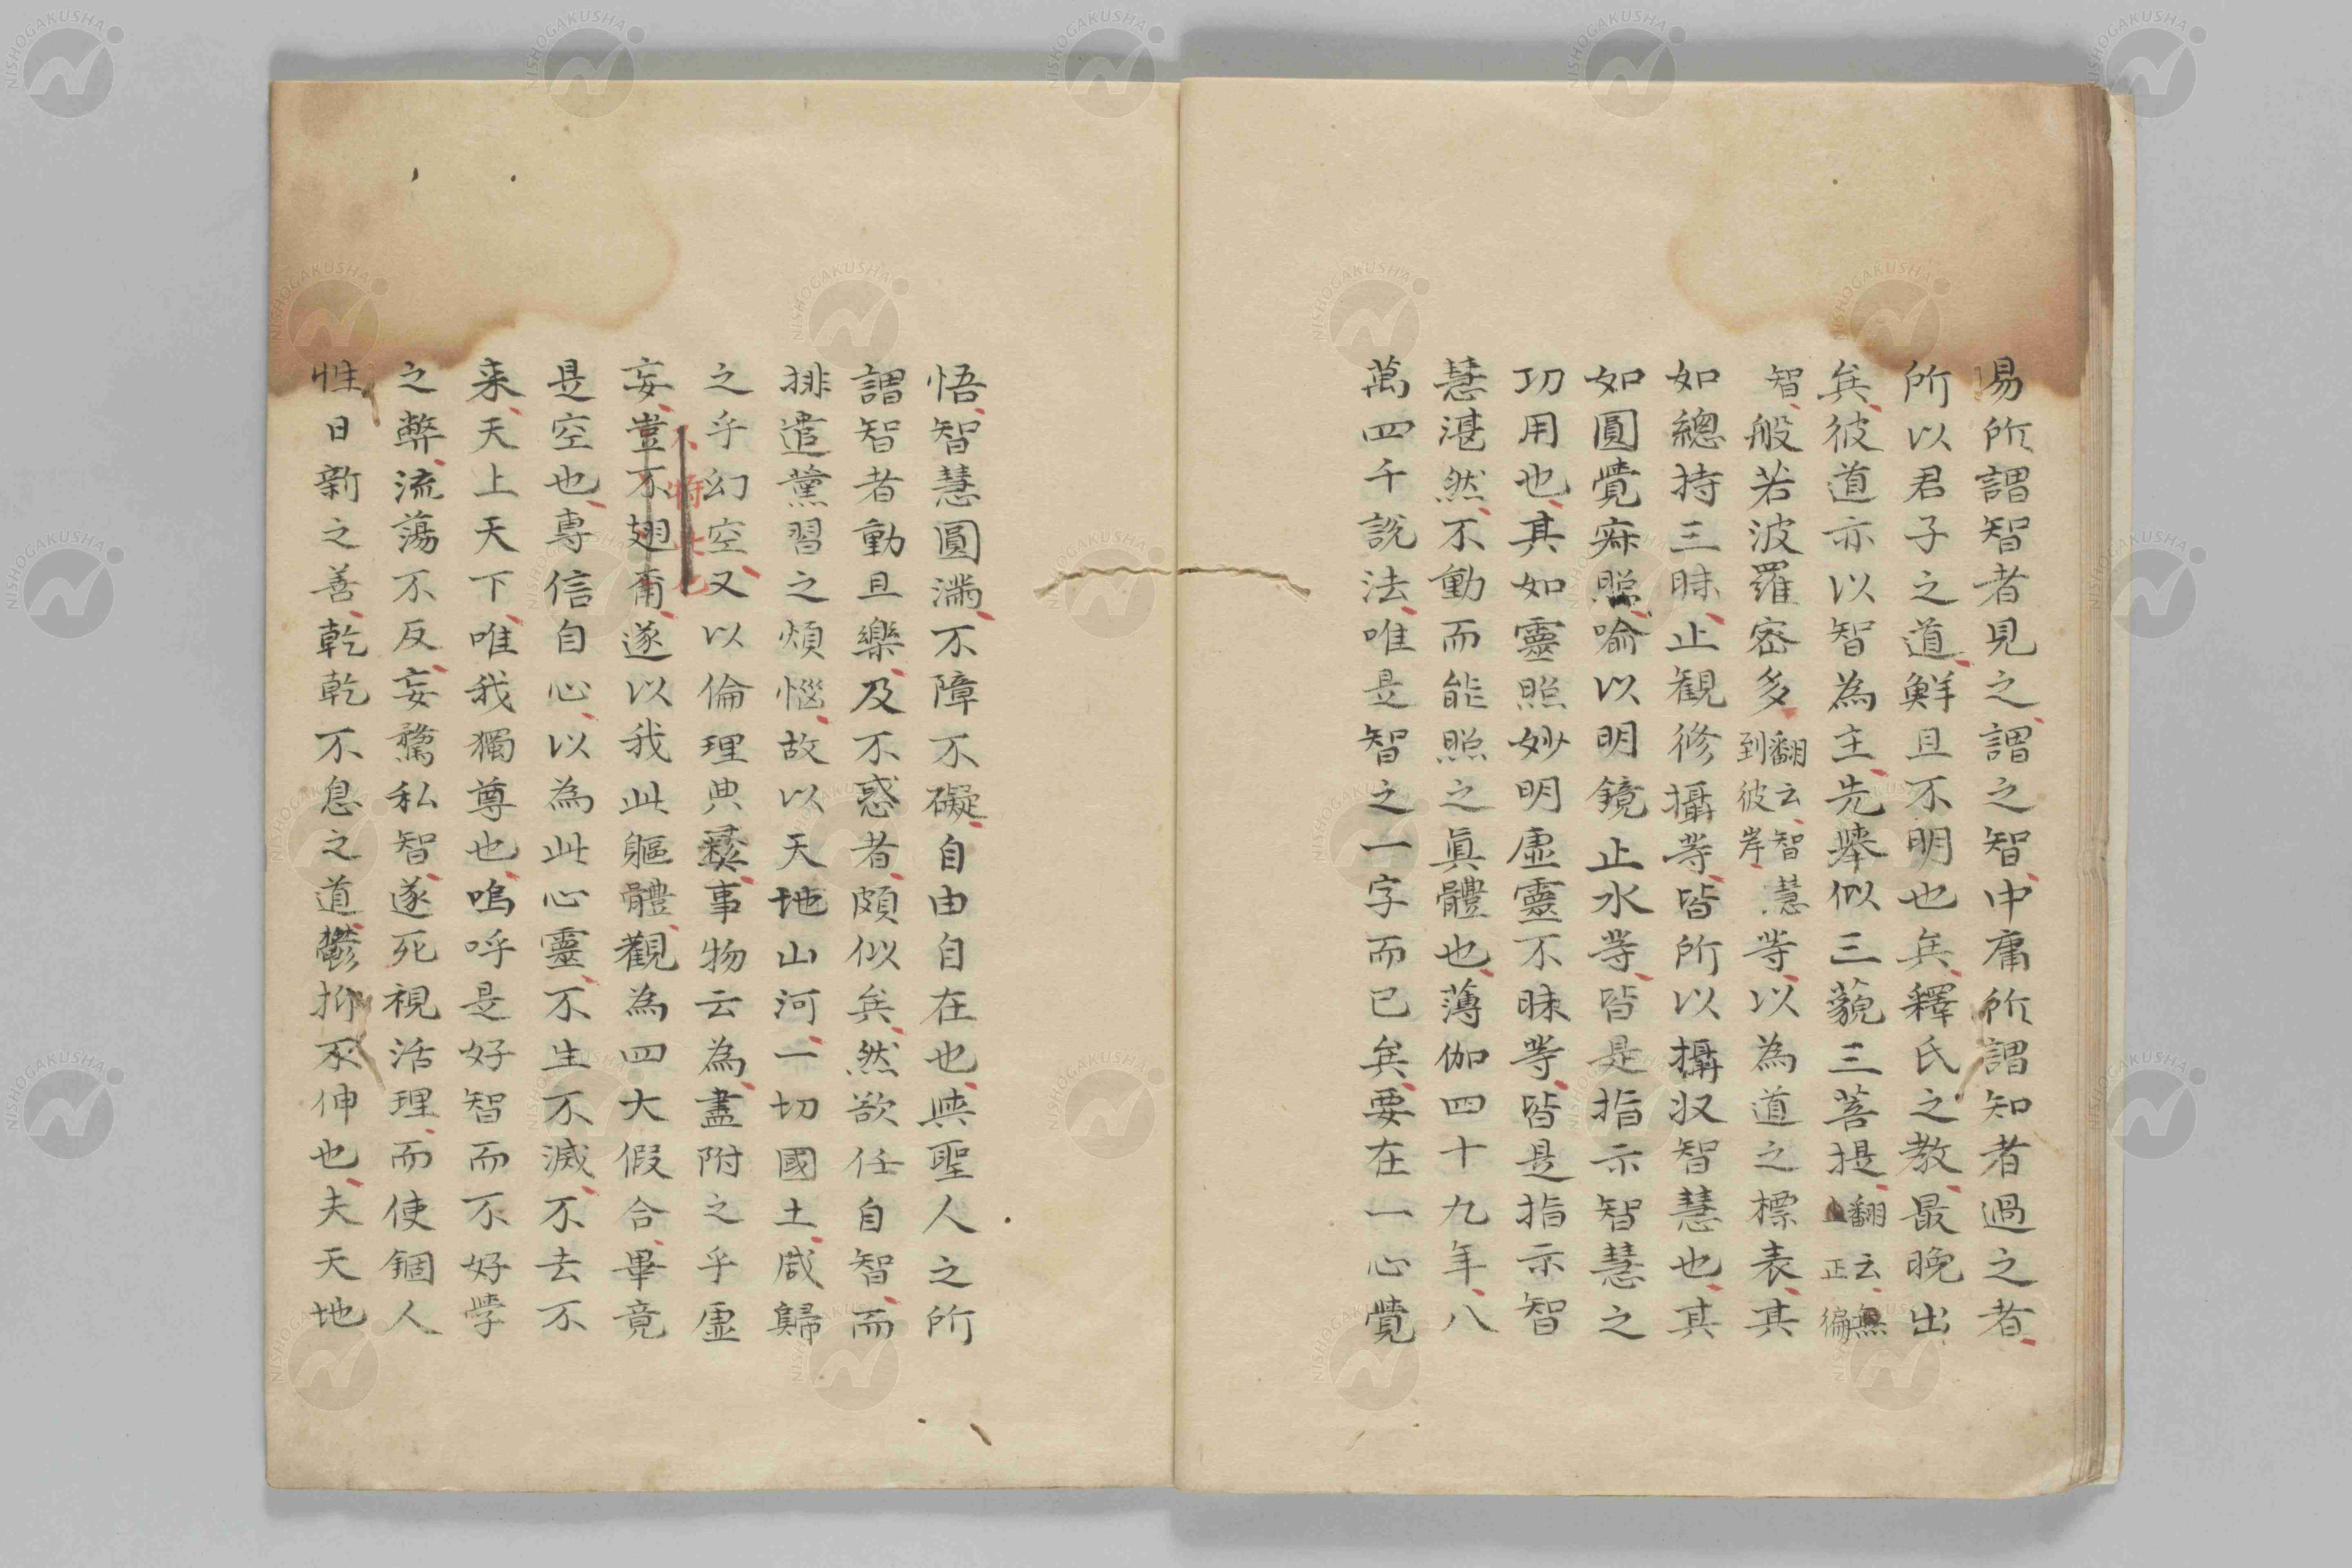 易所謂智者見之謂之智中庸所謂知者過之者
所以君子之道鮮且不明也矣釋氏之教最晚出
矣彼道亦以智為主先舉似三藐三菩提翻云無正徧
智般若波羅密多翻云智到彼岸慧等以為道之標表其
如總持三昧止観修攝等皆所以攝収智慧也其
如圓覺寂照喻以明鏡止水等皆是指示智慧之
功用也其如靈照妙明虛靈不昧等皆是指示智
慧湛然不動而能照之眞體也薄伽四十九年八
萬四千説法唯是智之一字而已矣要在一心覺
悟智慧圓満不障不礙自由自在也與聖人之所
謂智者動且樂及不惑者頗似矣然欲任自智而
排遣薫習之煩惱故以天地山河一切國土咸歸
之乎幻空又以倫理典彝事物云為盡附之乎虛
妄豈不翅甭遂以我此軀體觀為四大假合畢竟
是空也專信自心以為此心靈不生不滅不去不
来天上天下唯我獨尊也嗚呼是好智而不好學
之弊流蕩不反妄鶩私智遂死視活理而使錮人
性日新之善乾乾不息之道鬱抑不伸也夫天地